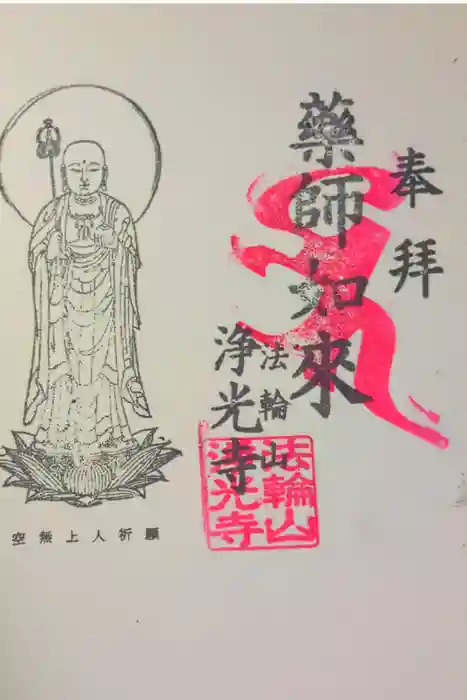 奉拝
藥師如來
法輪山
浄光寺
法輪山
浄光寺
願祈人上無空